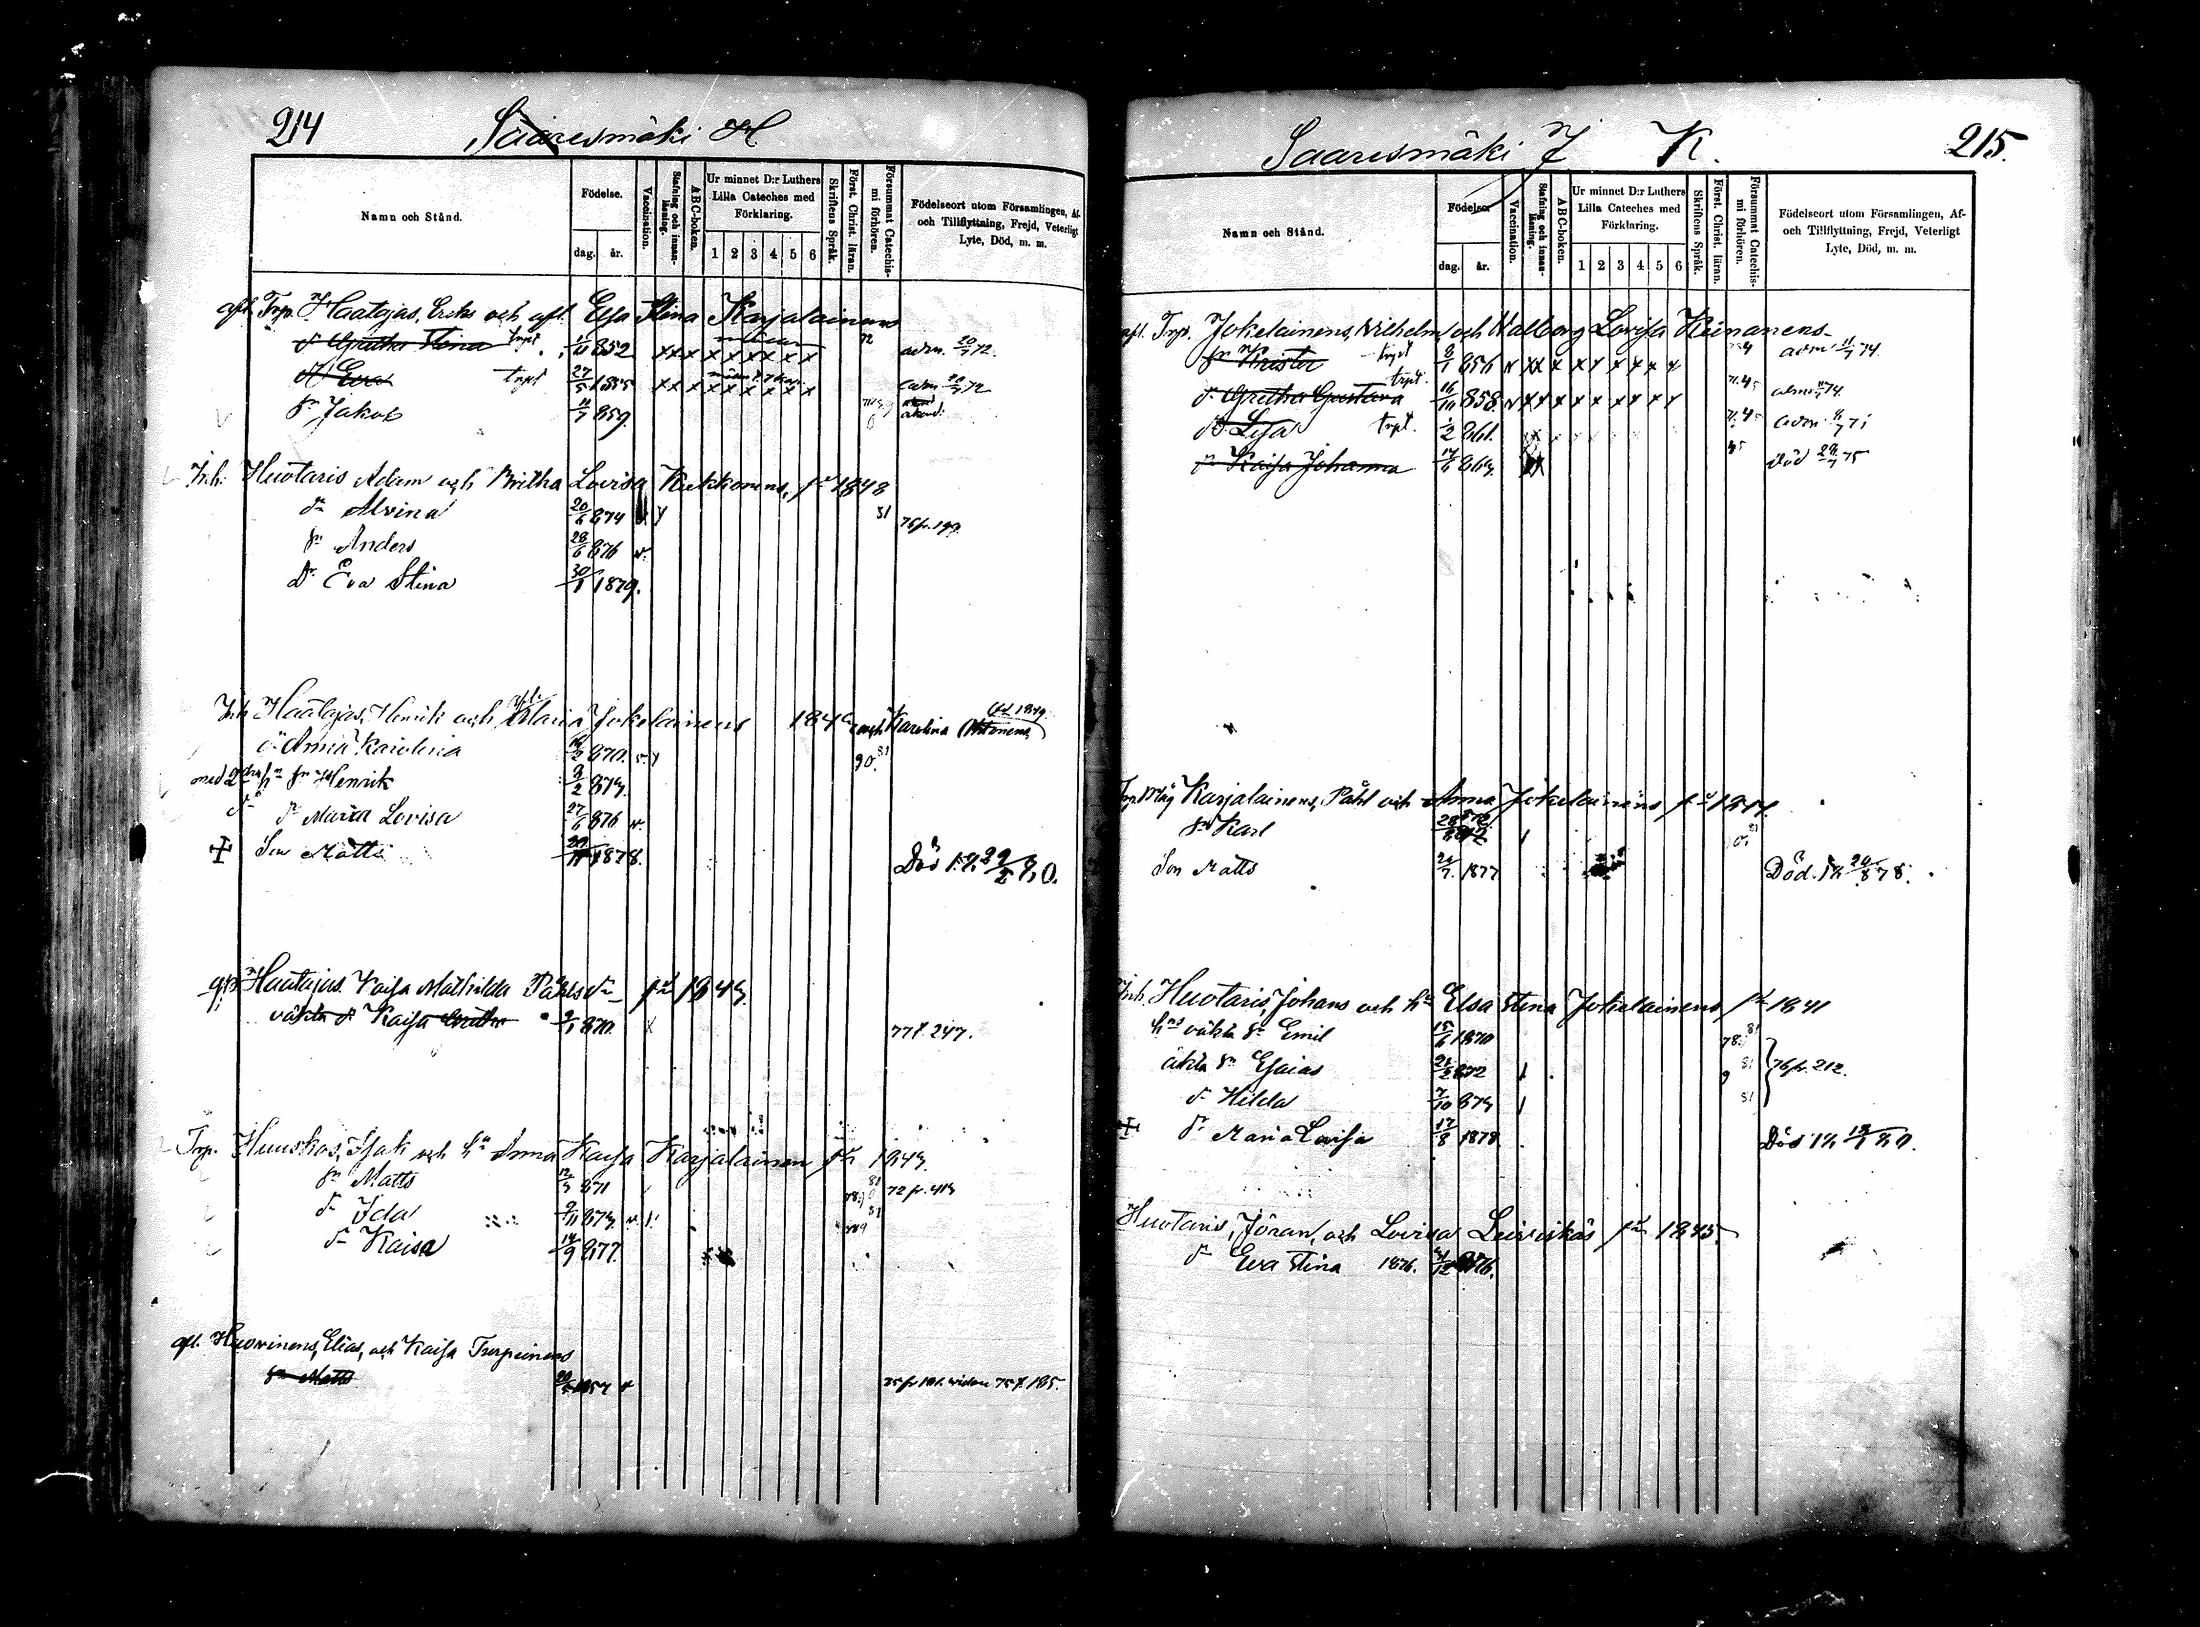 214 Saaresmäki H
Namn och Stånd.
Födelse.
dag. år.
Vaccination.
Stafning och innan-läsning.
ABC-boken.
Ur minnet D:r Luthers Lilla Cateches med Förklaring.
1 2 3 4 5 6
Skriftens Språk.
Först. Christ. läran.
Försummat Catechis-mi förhören.
Födelseort utom Församlingen, Af-
och Tillflyttning, Frejd, Veterligt
Lyte, Död, m. m.
afl. Trp. Haatajas, Eriks och afl. Elsa Stina Karjalainens
dr Gretha Stina trpl 852 x x x x x x x x x 72 adm. 20/7 72.
dr Eva trpl 27/5 1855 x x x x x x x x x adm 20/7 72
sn Jakob 11/7 859
Inh. Huotaris Adam och Britha Lovisa Kukkonens, fd 1848
dr Alvina 20/6 874 81 75 fr. 199.
sn Anders 28/6 876 v.
Dr Eva Stina 30/1 1879.
Inh Haatajas, Henrik och afl. Maria Jokelainens 184 och Karolina fd. 1849
dr Anna Karolina 2 870. 90. 81
med 2dra hu sn Henrik 9/2 873.
dr Maria Lovisa 27/6 876 v.
Son Matts 1878. Död 18 29/2 80.
Haatajas Kaisa Mathilda Påhls dr fd 1843.
oäkta dr Kaisa Gretha 9/1 870. 77 f. 247.
Trp. Huuskos, Isak och hu Anna Kaisa Karjalainen fd 1843.
sn Matts 12/3 871 81 72 fr. 413
dr Ida 9/11 873. v. 81
dr Kaisa 14/9 877.
afl. Huovinens, Elias, och Kaisa Turpeinens
sn Matts 1857 v 75 fr 181. sidan 75 f. 185.
Saaresmäki J K. 215.
Namn och Stånd.
Födelse.
dag. år.
Vaccination.
Stafning och innan-läsning.
ABC-boken.
Ur minnet D:r Luthers Lilla Cateches med Förklaring.
1 2 3 4 5 6
Skriftens Språk.
Först. Christ. läran.
Försummat Catechis-mi förhören.
Födelseort utom Församlingen, Af-
och Tillflyttning, Frejd, Veterligt
Lyte, Död, m. m.
afl. Trp. Jokelainens, Vilhelm, och Valborg Lovisa Keinänens
sn Krister trpl 8/1 856 v x x x x x x x x x adm 11/7 74.
dr Gretha Gustava trpl. 16/11 858. v x x x x x x x x x adm 74.
dr Lisa trpl. 2 861. adm.
dr Kaisa Johanna 17/6 863. Död 29/7 75
Trp Måg Karjalainens, Påhl och Anna Jokelainens fd 1847.
sn Karl 872 81
Son Matts 1877 Död. 18 20/8 78.
Inh. Huotaris, Johans och hu Elsa Stina Jokelainens fd 1841
hns oäkta sn Emil 15/6 1870 78. 81
äkta sn Esaias 872 81 76 fr. 212.
dr Hilda 7/10 873 81
dr Maria Lovisa 17/8 1878 Död 18 80.
Huotaris, Jöran, och Lovisa Leiviskäs fd 1845.
dr Eva Stina 1876. 12 876.